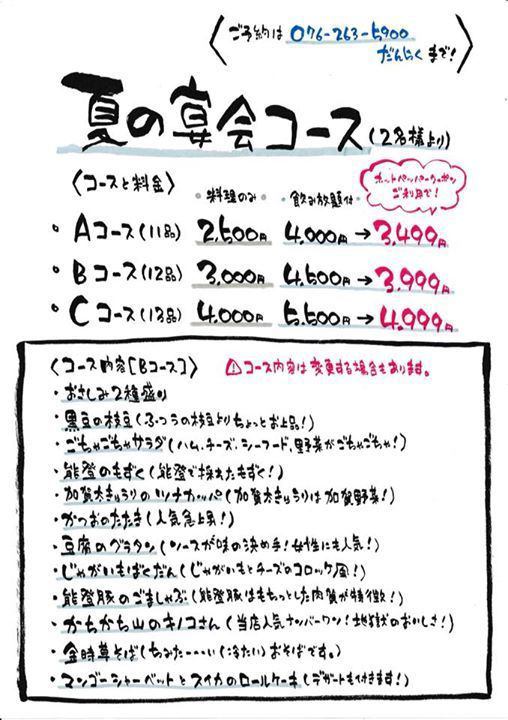 〈ご予約は 076-263-5900
だんにくまで！〉
夏の宴会コース(2名様より)
〈コースと料金〉 ・料理のみ・ ・飲み放題付・
ホットペッパークーポン
ご利用で！
・Aコース(11品) 2,500円 4,000円→3,499円
・Bコース(12品) 3,000円 4,500円→3,999円
・Cコース(13品) 4,000円 5,500円→4,999円
〈コース内容[Bコース]〉 ⚠コース内容は変更する場合もあります。
・おさしみ2種盛り
・黒豆の枝豆(ふつうの枝豆よりちょっとお上品！)
・ごちゃごちゃサラダ(ハム、チーズ、シーフード、野菜がごちゃごちゃ！)
・能登のもずく(能登で採れたもずく！)
・加賀太きゅうりのツナカッパ(加賀太きゅうりは加賀野菜！)
・かつおのたたき(人気急上昇！)
・豆腐のグラタン(ソースが味の決め手！女性にも人気！)
・じゃがいもばくだん(じゃがいもとチーズのコロッケ風！)
・能登豚のごましゃぶ(能登豚はももっとした肉質が特徴！)
・かちかち山のキノコさん(当店人気ナンバーワン！地獄のおいしさ！)
・金時草そば(ちみたーーーい(冷たい)おそばです。)
・マンゴーシャーベットとスイカのロールケーキ(デザートも付きます！)